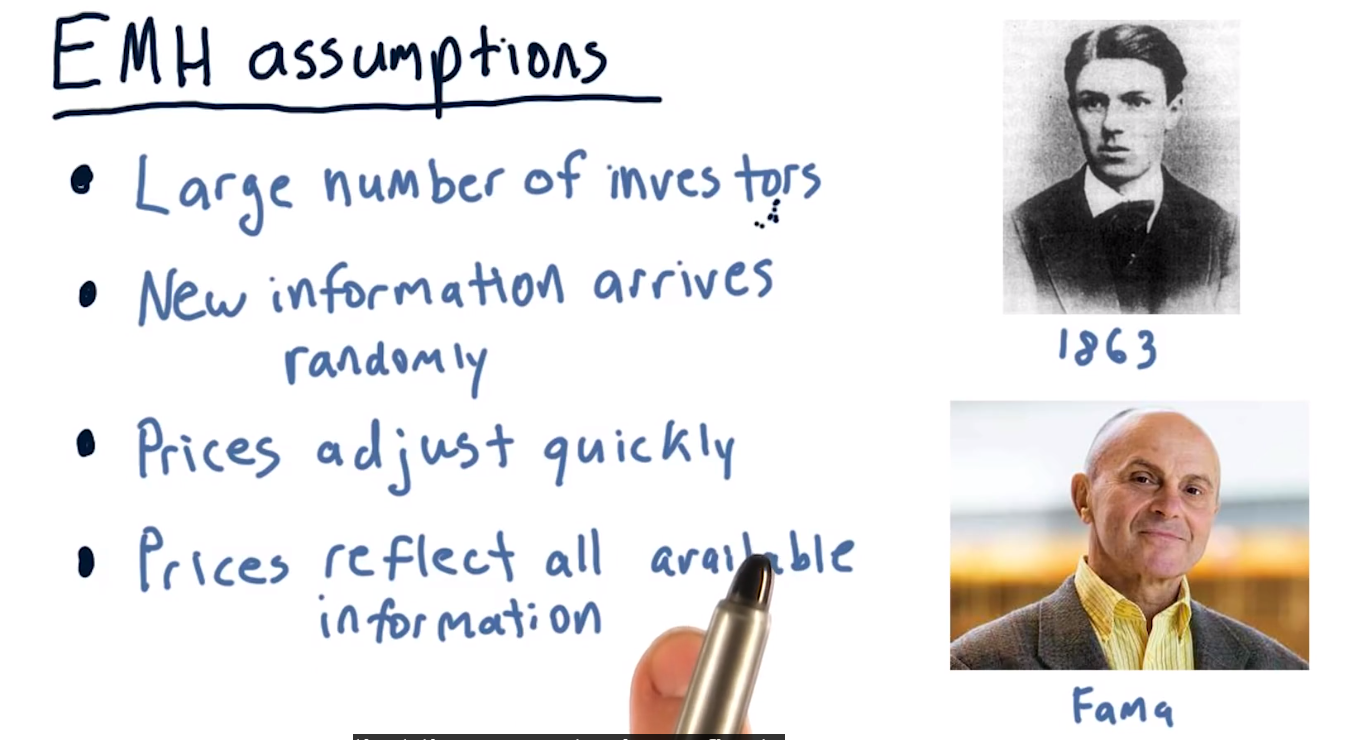 EMH assumptions
• Large number of investors
• New information arrives
randomly
• Prices adjust quickly
• Prices reflect all available
information
1863
Fama